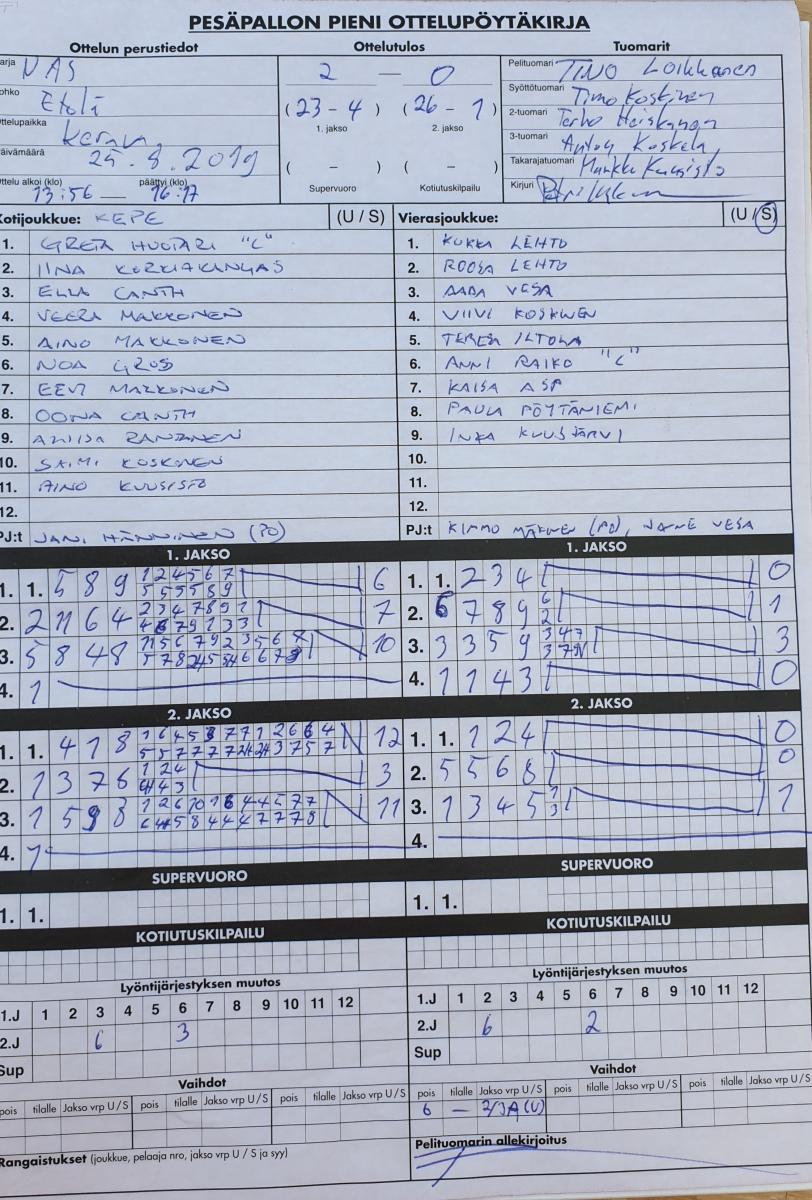 PESÄPALLON PIENI OTTELUPÖYTÄKIRJA
Ottelun perustiedot
NAS
Etelä
Kerava
25.8.2019
Ottelu alkoi (klo) päättyi (klo)
13:56 — 16:17
Ottelutulos
2 — 0
(23 - 4) (26 - 1)
1. jakso 2. jakso
( - ) ( - )
Supervuoro Kotiutuskilpailu
Tuomarit
Pelituomari TINO Loikkanen
Syöttötuomari Timo Koskinen
2-tuomari Terho Heiskanen
3-tuomari Koskela
Takarajatuomari Markku Kuusisto
Kirjuri
Kotijoukkue: KEPE (U / S)
1. GRETA HUOTARI "C"
2. IINA KORKIAKANGAS
3. ELLA CANTH
4. VEERA MAKKONEN
5. AINO MAKKONEN
6. NOA GROS
7. EEVI MAKKONEN
8. OONA CANTH
9. RANTANEN
10. SAIMI KOSKINEN
11. AINO KUUSISTO
12.
PJ:t JANI HÄNNINEN (PO)
Vierasjoukkue: (U / S)
1. KUKKA LEHTO
2. ROOSA LEHTO
3. AADA VESA
4. VIIVI KOSKINEN
5. TERESA ILTOLA
6. ANNI RAIKO "C"
7. KAISA ASP
8. PAULA PÖYTÄNIEMI
9. INKA KUUSJÄRVI
10.
11.
12.
PJ:t KIMMO MÄKINEN (PO), JANNE VESA
1. JAKSO
1. 1. 5 8 9 1 2 4 5 6 7 6
5 5 5 5 8 9
2. 2 11 6 4 2 3 4 7 8 9 1 7
3. 5 8 4 8 10
4. 1
1. JAKSO
1. 1. 2 3 4 0
2. 6 7 8 9 6 1
2
3. 3 3 5 9 3 4 7 3
4. 1 1 4 3 0
2. JAKSO
1. 1. 4 1 8 12
2. 1 3 7 6 1 2 4 3
3. 1 5 9 3 11
4. 1
2. JAKSO
1. 1. 1 2 4 0
2. 5 5 6 8 0
3. 1 3 4 5 1 1
3
4.
SUPERVUORO
1. 1.
SUPERVUORO
1. 1.
KOTIUTUSKILPAILU
KOTIUTUSKILPAILU
Lyöntijärjestyksen muutos
1.J 1 2 3 4 5 6 7 8 9 10 11 12
2.J 6 3
Sup
Lyöntijärjestyksen muutos
1.J 1 2 3 4 5 6 7 8 9 10 11 12
2.J 6 2
Sup
Vaihdot
pois tilalle Jakso vrp U / S pois tilalle Jakso vrp U / S pois tilalle Jakso vrp U / S
Vaihdot
pois tilalle Jakso vrp U / S pois tilalle Jakso vrp U / S pois tilalle Jakso vrp U / S
6 —
Rangaistukset (joukkue, pelaaja nro, jakso vrp U / S ja syy)
Pelituomarin allekirjoitus